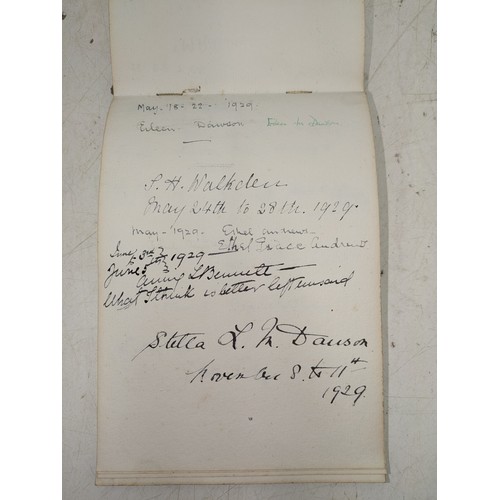 May. 18-22- 1929.
Eileen Dawson
S. H. Walkden
May 24th to 28th. 1929.
May - 1929. Ethel Andrews
Ethel Grace Andrews
June 3rd
June 1929
L Bennett
What I think is better left unsaid
Stella L. M. Dawson
November 8. to 11th
1929.